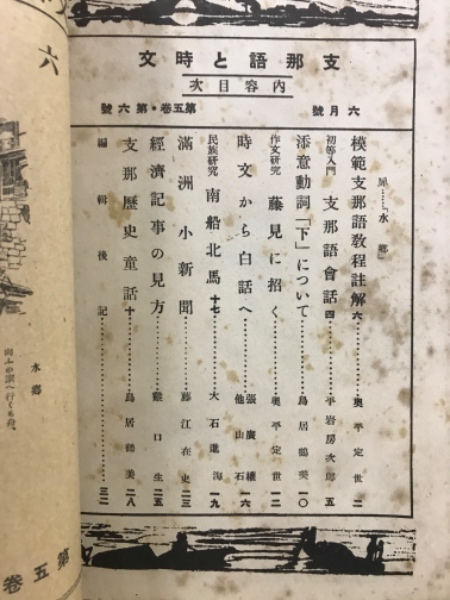 支那語と時文
内容目次
六月號　第五卷・第六號
扉……「水鄕」
模範支那語敎程註解 六………奥平定世 二
初等入門 支那語會話 四………平岩房次郎 五
添意動詞「下」について………鳥居鶴美 一〇
作文硏究 藤見に招く………奥平定世 一二
時文から白話へ………張廣權 他山石 一六
民族硏究 南船北馬 十七………大石進海 一九
滿洲小新聞………藤江在史 二三
經濟記事の見方………雞口生 二五
支那歷史童話 十………鳥居鶴美 二八
編輯後記………三二
六
水鄕
第五卷